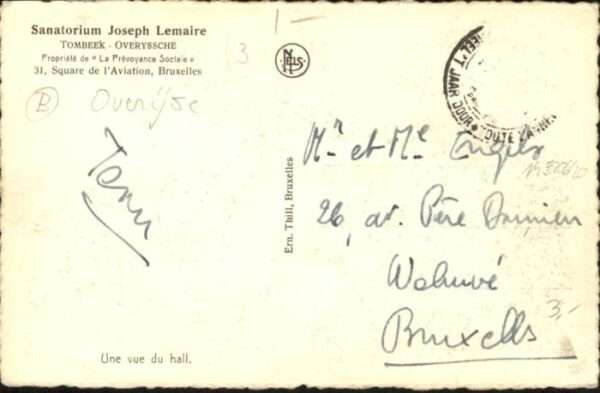 Sanatorium Joseph Lemaire
TOMBEEK - OVERYSSCHE
Propriété de « La Prévoyance Sociale »
31, Square de l'Aviation, Bruxelles
B Overijse
3
1-
NELS
HEEL 'T JAAR DOOR • TOUTE L'ANNEE
Ern. Thill, Bruxelles
Mr et Me
26, av. Père Damien
Woluwé
Bruxelles
3,-
Une vue du hall.